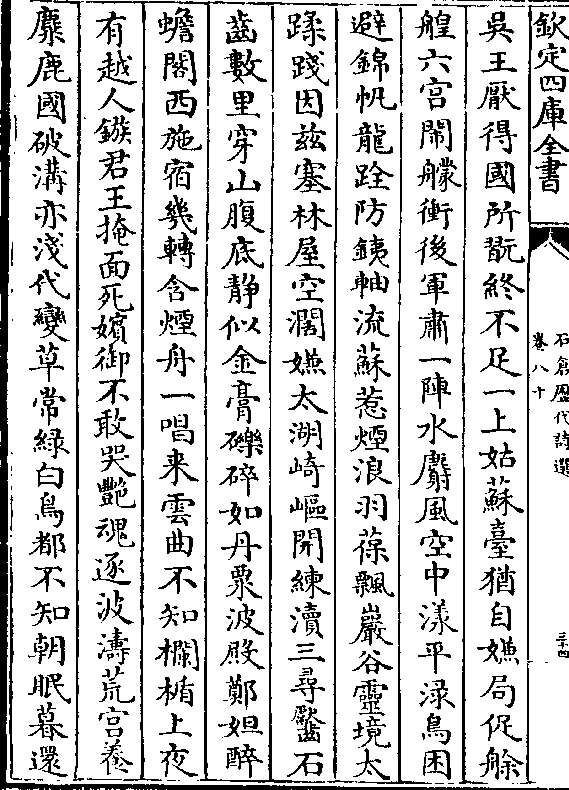 欽定四庫全書
石倉歷代詩選
卷八十
三十四
吳王厭得國所翫終不足一上姑蘇臺猶自嫌局促艅
艎六宮鬧艨衝後軍肅一陣水麝風空中漾平渌鳥困
避錦帆龍跧防鐵軸流蘇惹煙浪羽葆飄巖谷靈境太
蹂踐因兹塞林屋空濶嫌太湖崎嶇開練瀆三尋齾石
齒數里穿山腹底静似金膏礫碎如丹粟波殿鄭妲醉
蟾閣西施宿幾轉含煙舟一唱来雲曲不知欄楯上夜
有越人鏃君王掩面死嬪御不敢哭艷魂逐波濤荒宮養
麋鹿國破溝亦淺代變草常緑白鳥都不知朝眠暮還